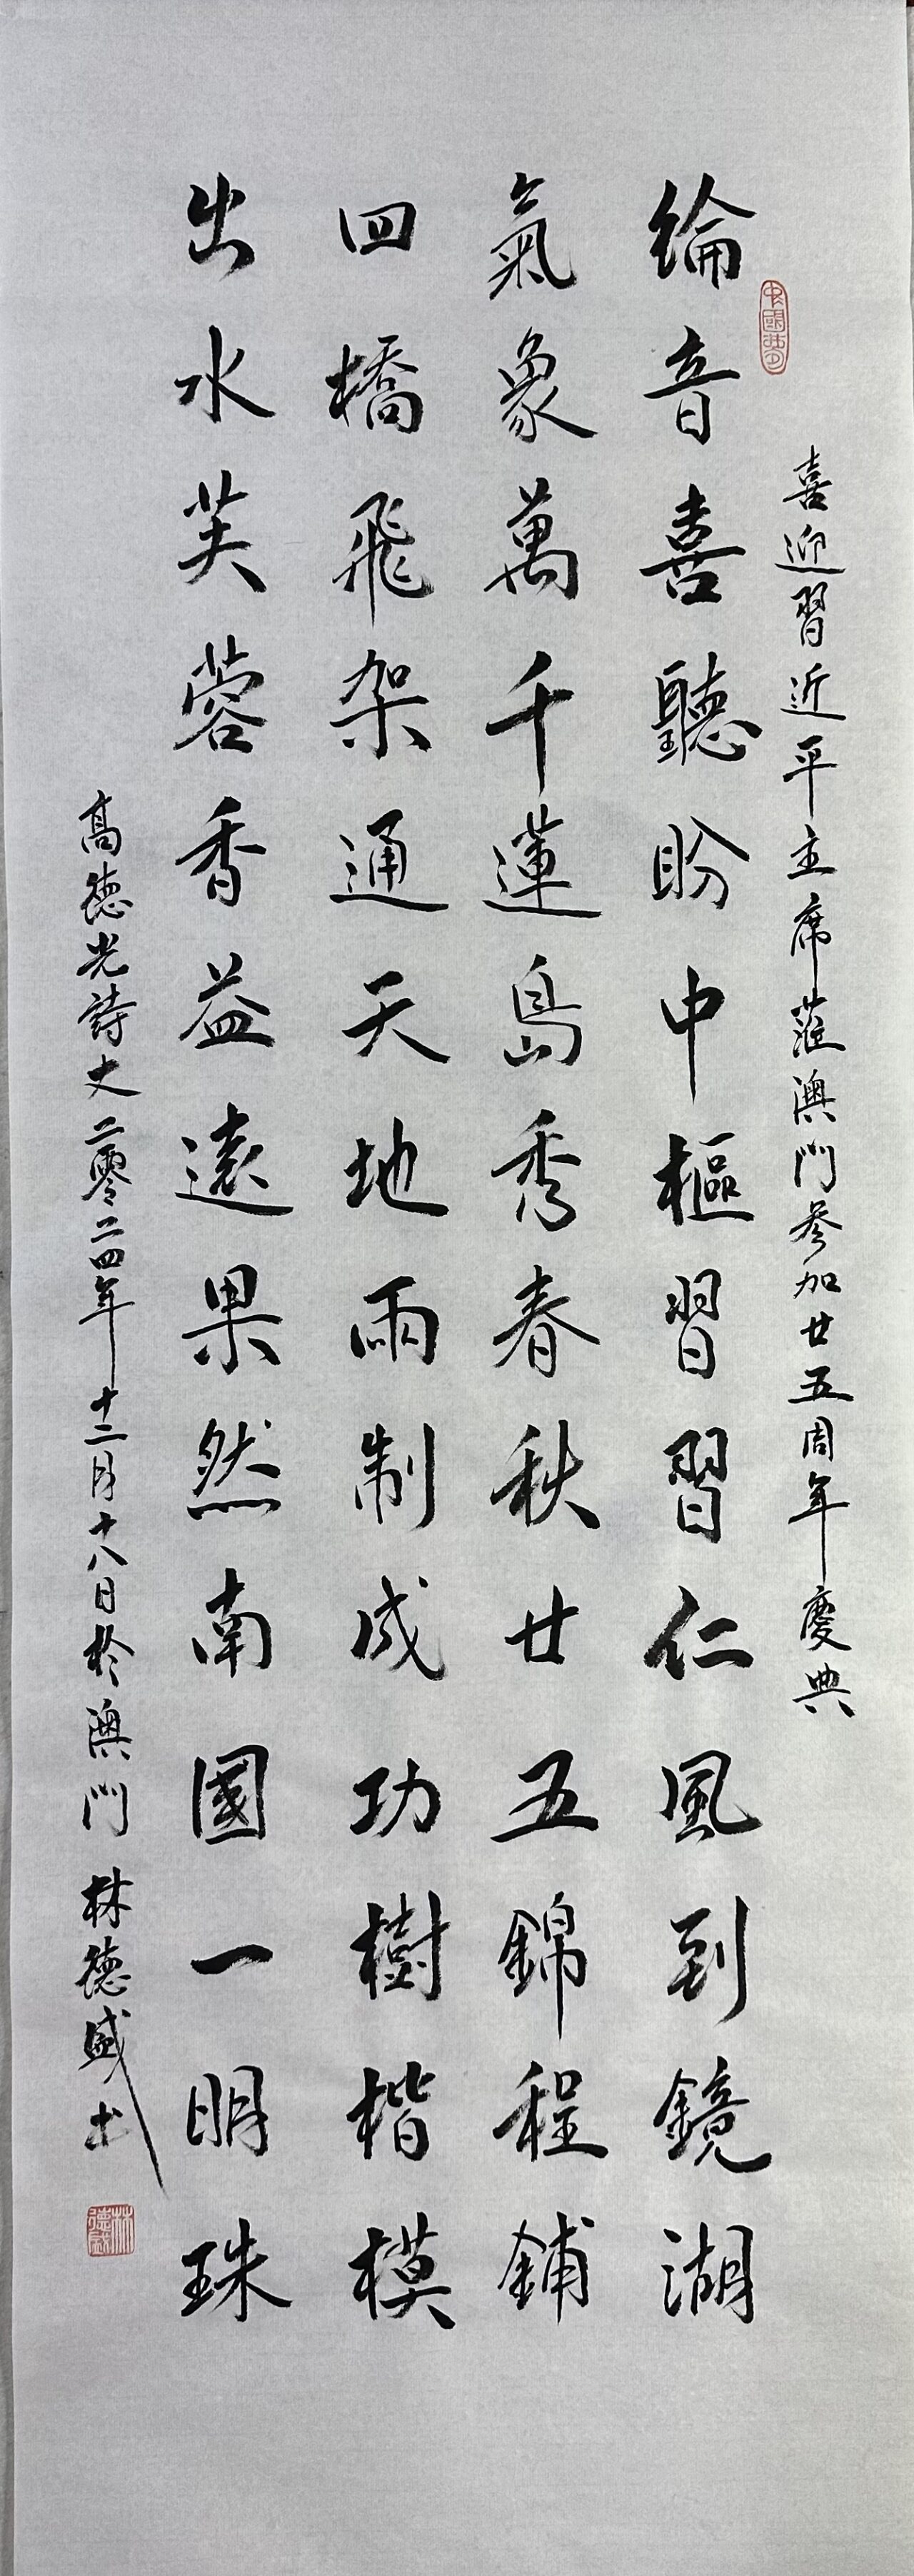 中國夢
喜迎習近平主席蒞澳門參加廿五周年慶典
綸音喜聽盼中樞習習仁風到鏡湖
氣象萬千蓮島秀春秋廿五錦程鋪
四橋飛架通天地兩制成功樹楷模
出水芙蓉香益遠果然南國一明珠
高德光詩丈二零二四年十二月十八日於澳門林德盛书
林德盛